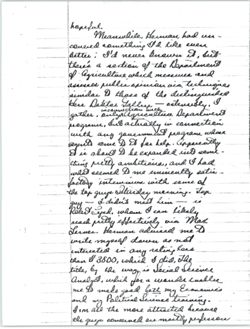 hopeful.
Meanwhile, Herman had un-
covered something I'd like even
better; I'd never known it, but
there's a section of the Department
of Agriculture which measures and
assesses public opinion via techniques
similar to those of the distinguished
here — ostensibly, I
gather, in connection with Department
programs, but actually in connection
with any government program whose
agents come to it for help. Apparently
it is about to be expanded into some-
thing pretty ambitious, and I had
what seemed to me eminently satis-
factory interviews with some of
the top guys Saturday morning. Top
guy — I didn't meet him — is
whom I can likely
reach pretty effectively via
Lerner. Herman advised me to
write myself down as not
interested in any rating less
than $3800, which I did. The
title, by the way, is Social Science
Analyst, which for a wonder enables
me to make good both my Economics
and my Political Science training.
I am all the more attracted because
the guys concerned are mostly professors